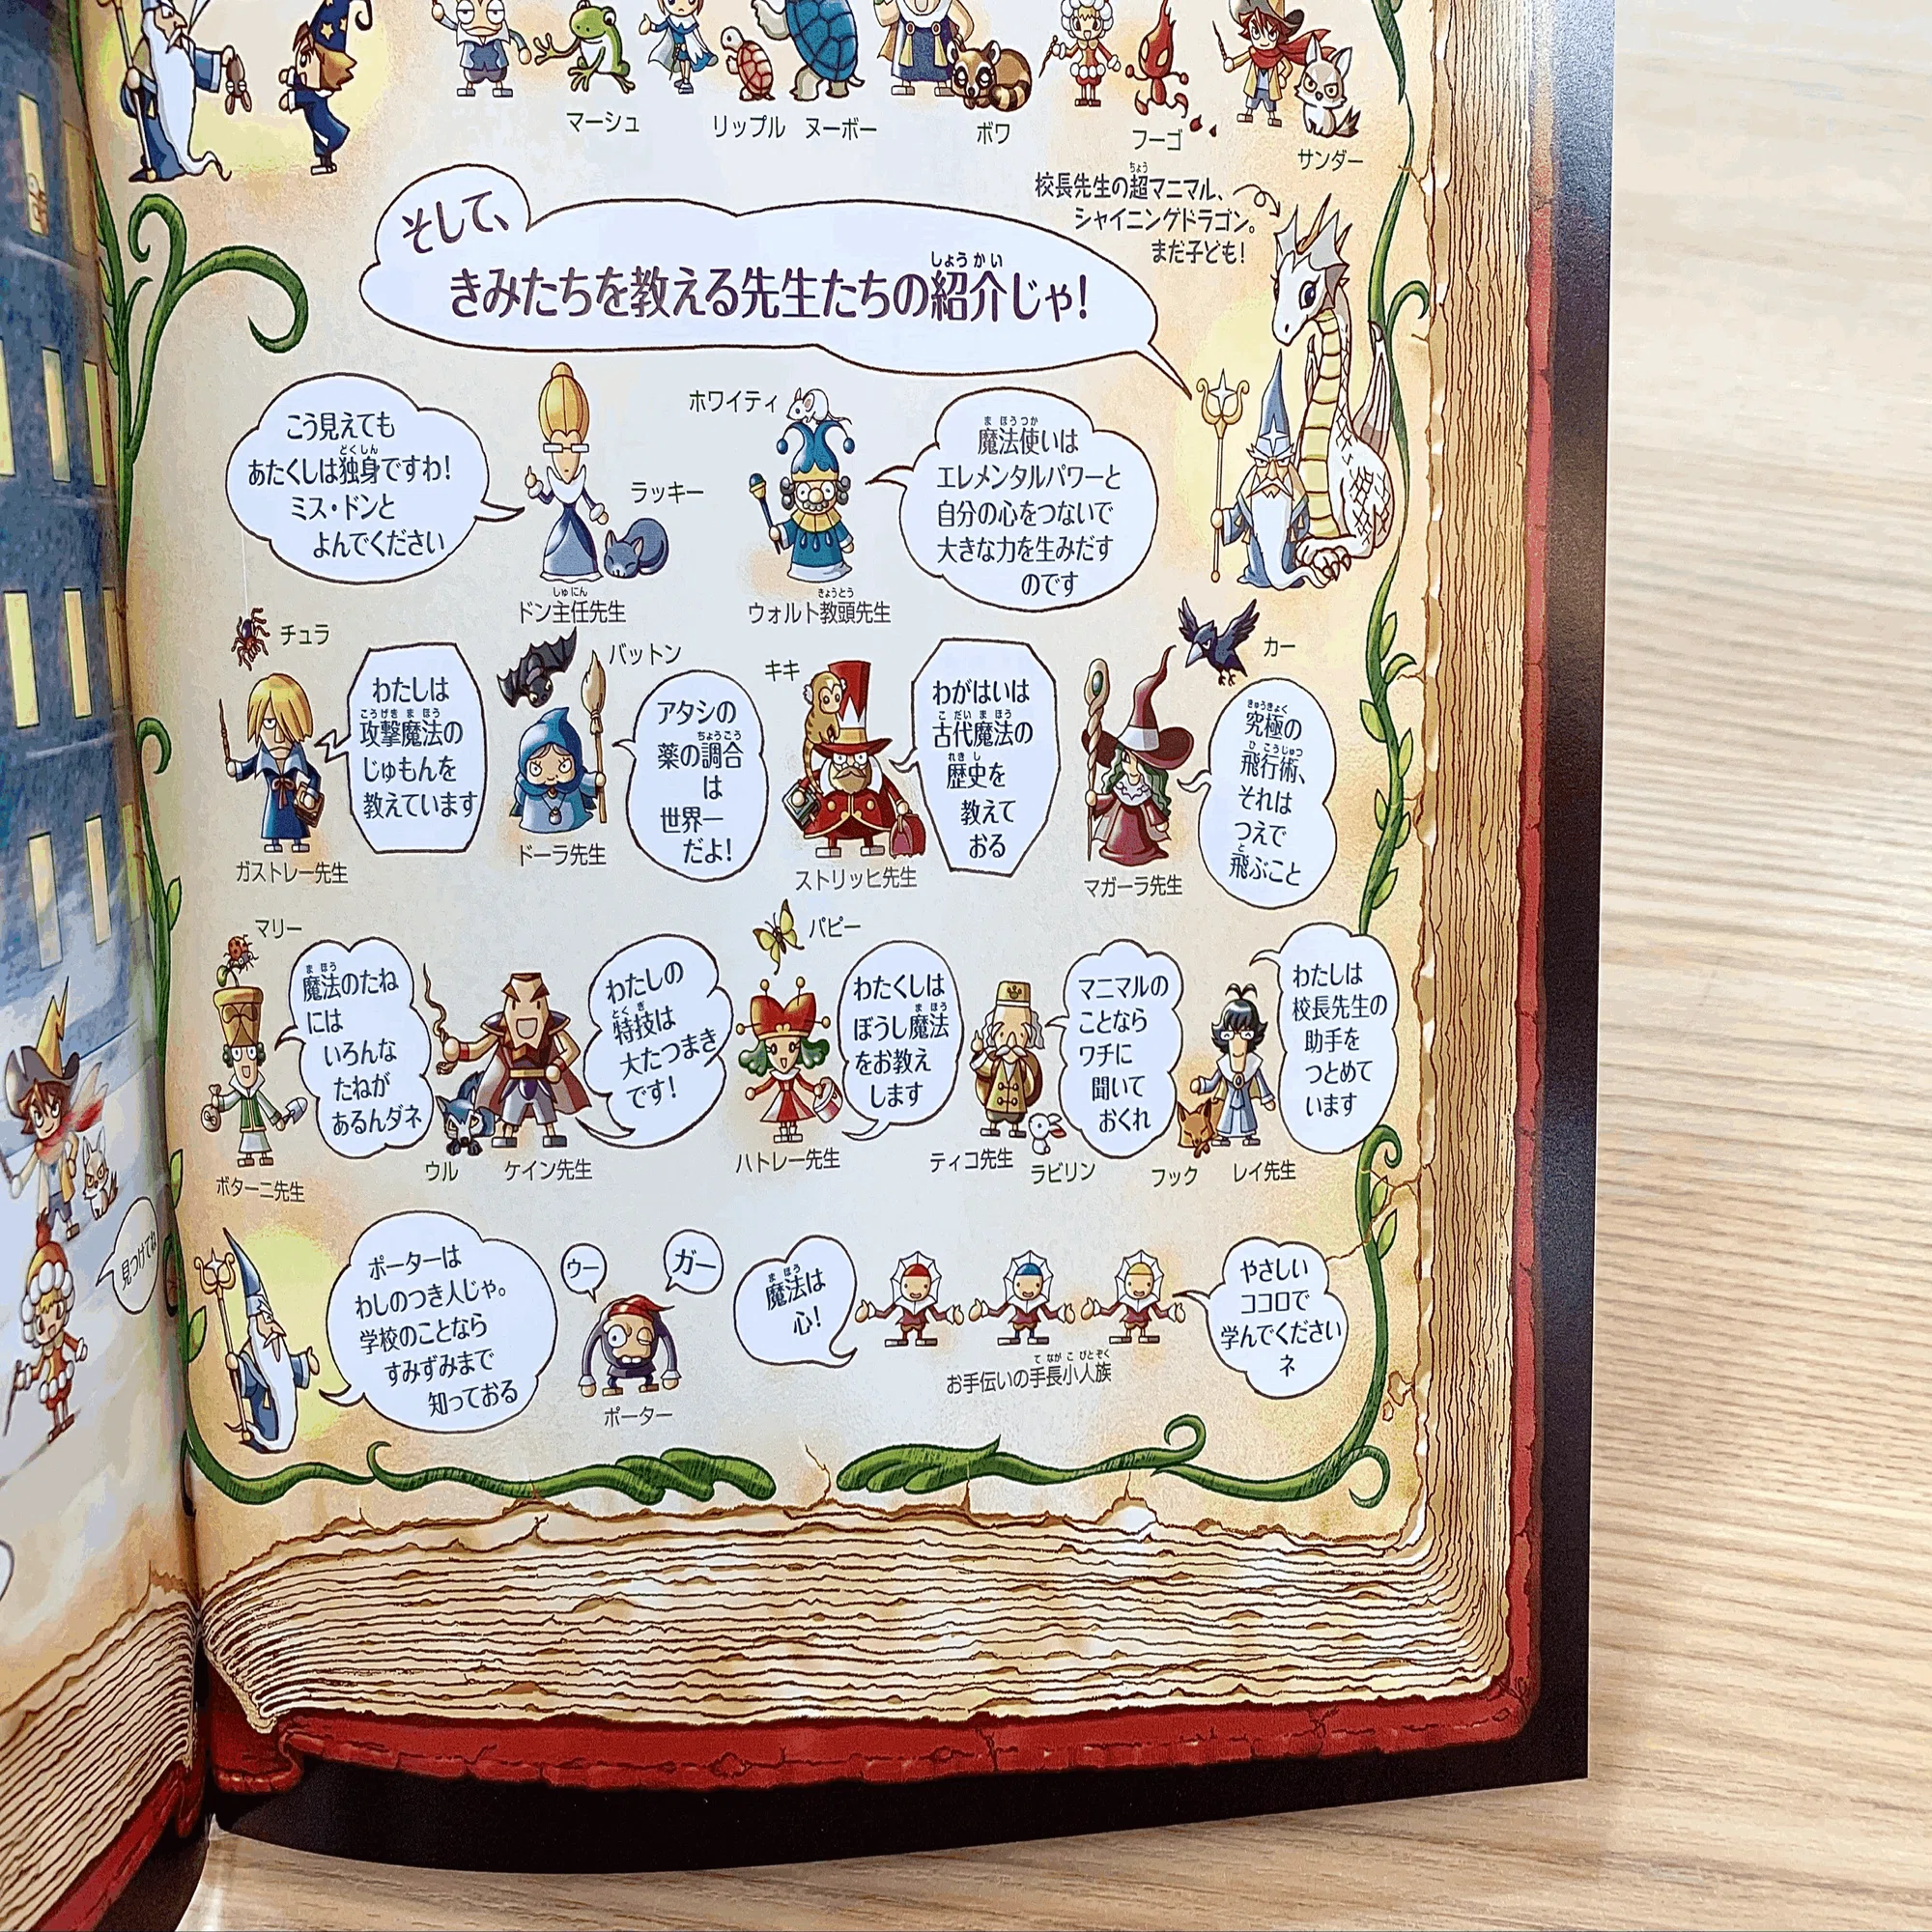 マーシュ
リップル ヌーボー
ボワ
フーゴ
サンダー
校長先生の超マニマル、
シャイニングドラゴン。
まだ子ども!
そして、
きみたちを教える先生たちの紹介じゃ!
こう見えても
あたくしは独身ですわ!
ミス・ドンと
よんでください
ラッキー
ドン主任先生
ホワイティ
ウォルト教頭先生
魔法使いは
エレメンタルパワーと
自分の心をつないで
大きな力を生みだす
のです
チュラ
ガストレー先生
わたしは
攻撃魔法の
じゅもんを
教えています
バットン
ドーラ先生
アタシの
薬の調合
は
世界一
だよ!
キキ
ストリッヒ先生
わがはいは
古代魔法の
歴史を
教えて
おる
カー
マガーラ先生
究極の
飛行術、
それは
つえで
飛ぶこと
マリー
ボターニ先生
魔法のたね
には
いろんな
たねが
あるんダネ
ウル
ケイン先生
わたしの
特技は
大たつまき
です!
パピー
ハトレー先生
わたくしは
ぼうし魔法
をお教え
します
ティコ先生
ラビリン
マニマルの
ことなら
ワチに
聞いて
おくれ
フック
レイ先生
わたしは
校長先生の
助手を
つとめて
います
見つけてね
ポーターは
わしのつき人じゃ。
学校のことなら
すみずみまで
知っておる
ウー
ガー
ポーター
魔法は
心!
お手伝いの手長小人族
やさしい
ココロで
学んでください
ネ